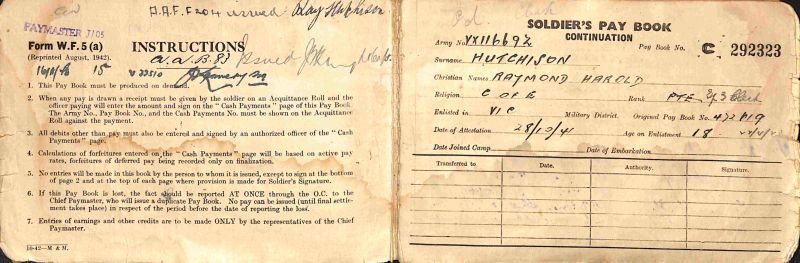 A.A.F. F204 issued. Ray Hutchison
PAYMASTER 3105
Form W.F. 5 (a)
(Reprinted August, 1942).
INSTRUCTIONS
a.a.B. 83 Issued
16/10/43 15
V 33510
1. This Pay Book must be produced on demand.
2. When any pay is drawn a receipt must be given by the soldier on an Acquittance Roll and the
officer paying will enter the amount and sign on the "Cash Payments" page of this Pay Book.
The Army No., Pay Book No., and the Cash Payments No. must be shown on the Acquittance
Roll against the payment.
3. All debits other than pay must also be entered and signed by an authorized officer of the "Cash
Payments" page.
4. Calculations of forfeitures entered on the "Cash Payments" page will be based on active pay
rates, forfeitures of deferred pay being recorded only on finalization.
5. No entries will be made in this book by the person to whom it is issued, except to sign at the bottom
of page 2 and at the top of each page where provision is made for Soldier's Signature.
6. If this Pay Book is lost, the fact should be reported AT ONCE through the O.C. to the
Chief Paymaster, who will issue a duplicate Pay Book. No pay can be issued (until final settle-
ment takes place) in respect of the period before the date of reporting the loss.
7. Entries of earnings and other credits are to be made ONLY by the representatives of the Chief
Paymaster.
10-42—M & M.
SOLDIER'S PAY BOOK
CONTINUATION
Army No. VX116692 Pay Book No. C 292323
Surname HUTCHISON
Christian Names RAYMOND HAROLD
Religion C OF E Rank PTE
Enlisted in VIC Military District. Original Pay Book No. 472819
Date of Attestation 28/12/41 Age on Enlistment 18
Date Joined Camp Date of Embarkation
Transferred to Date. Authority. Signature.